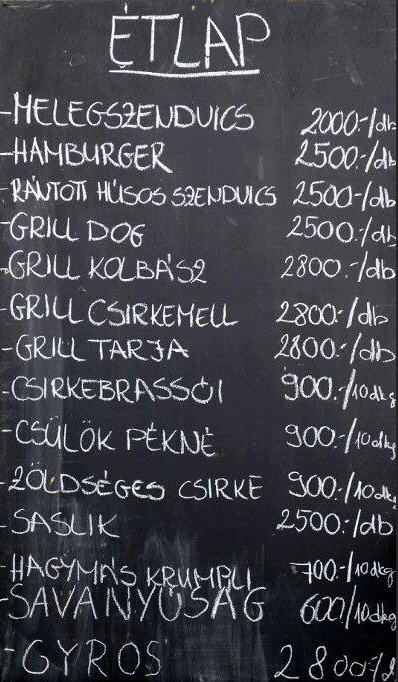 ÉTLAP
-MELEGSZENDVICS 2000.-/db
-HAMBURGER 2500.-/db
-RÁNTOTT HÚSOS SZENDVICS 2500-/db
-GRILL DOG 2500.-/db
-GRILL KOLBÁSZ 2800.-/db
-GRILL CSIRKEMELL 2800.-/db
-GRILL TARJA 2800.-/db
-CSIRKEBRASSÓI 900.-/10dkg
-CSÜLÖK PÉKNÉ 900.-/10dkg
-ZÖLDSÉGES CSIRKE 900.-/10dkg
-SASLIK 2500.-/db
-HAGYMÁS KRUMPLI 700.-/10dkg
-SAVANYÚSÁG 600/10dkg
-GYROS 2800.-/